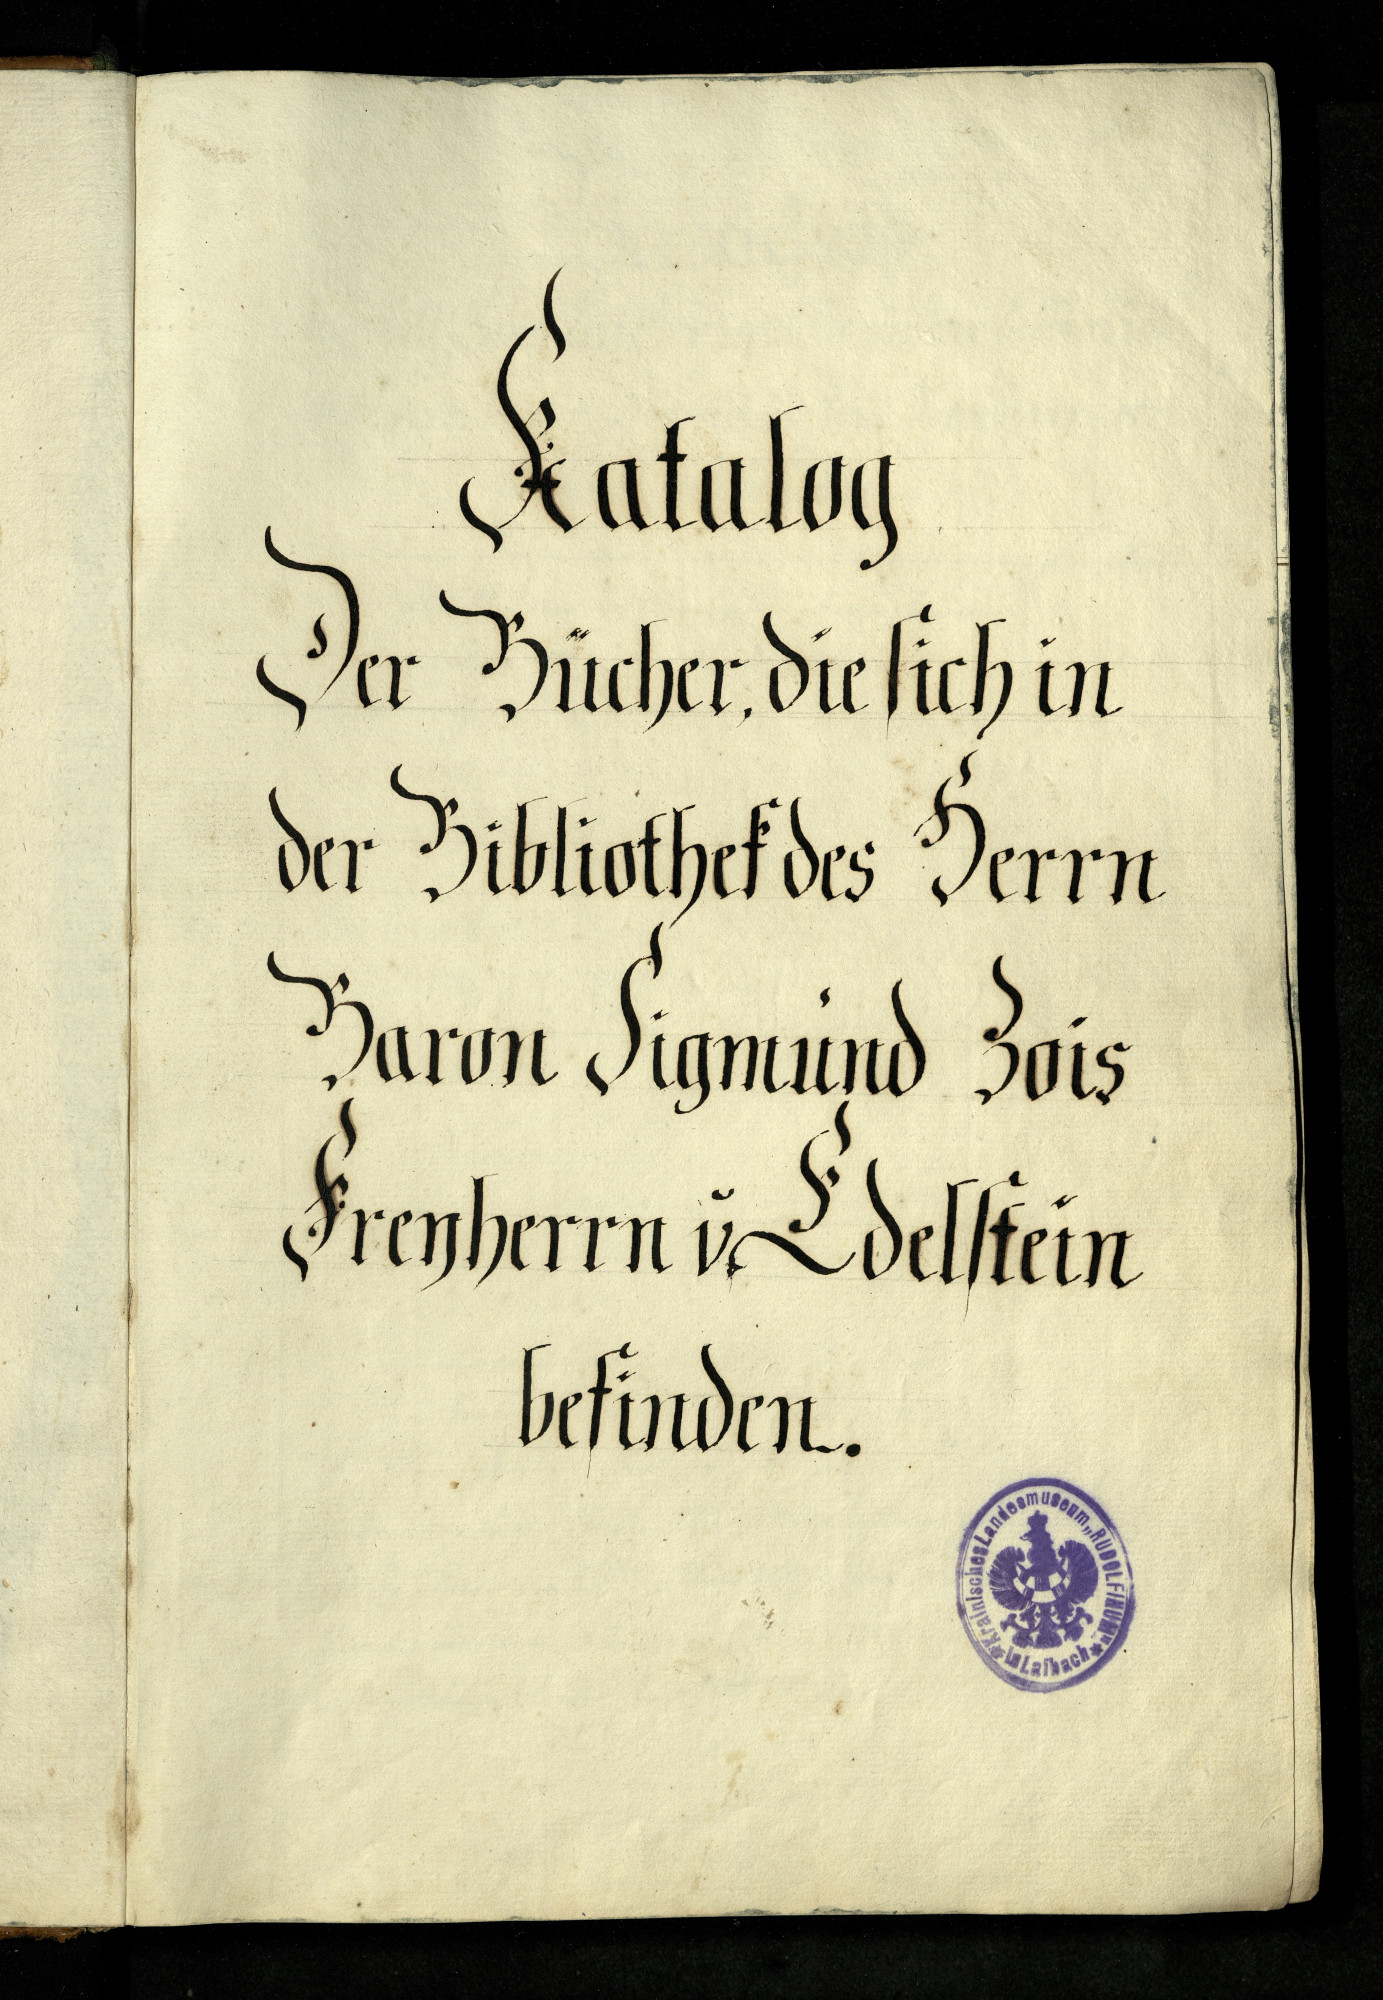 Katalog
Der Bücher, die sich in
der Bibliothek des Herrn
Baron Sigmund Zois
Freyherrn v. Edelstein
befinden.
Krainisches Landesmuseum „RUDOLFINUM“
in Laibach